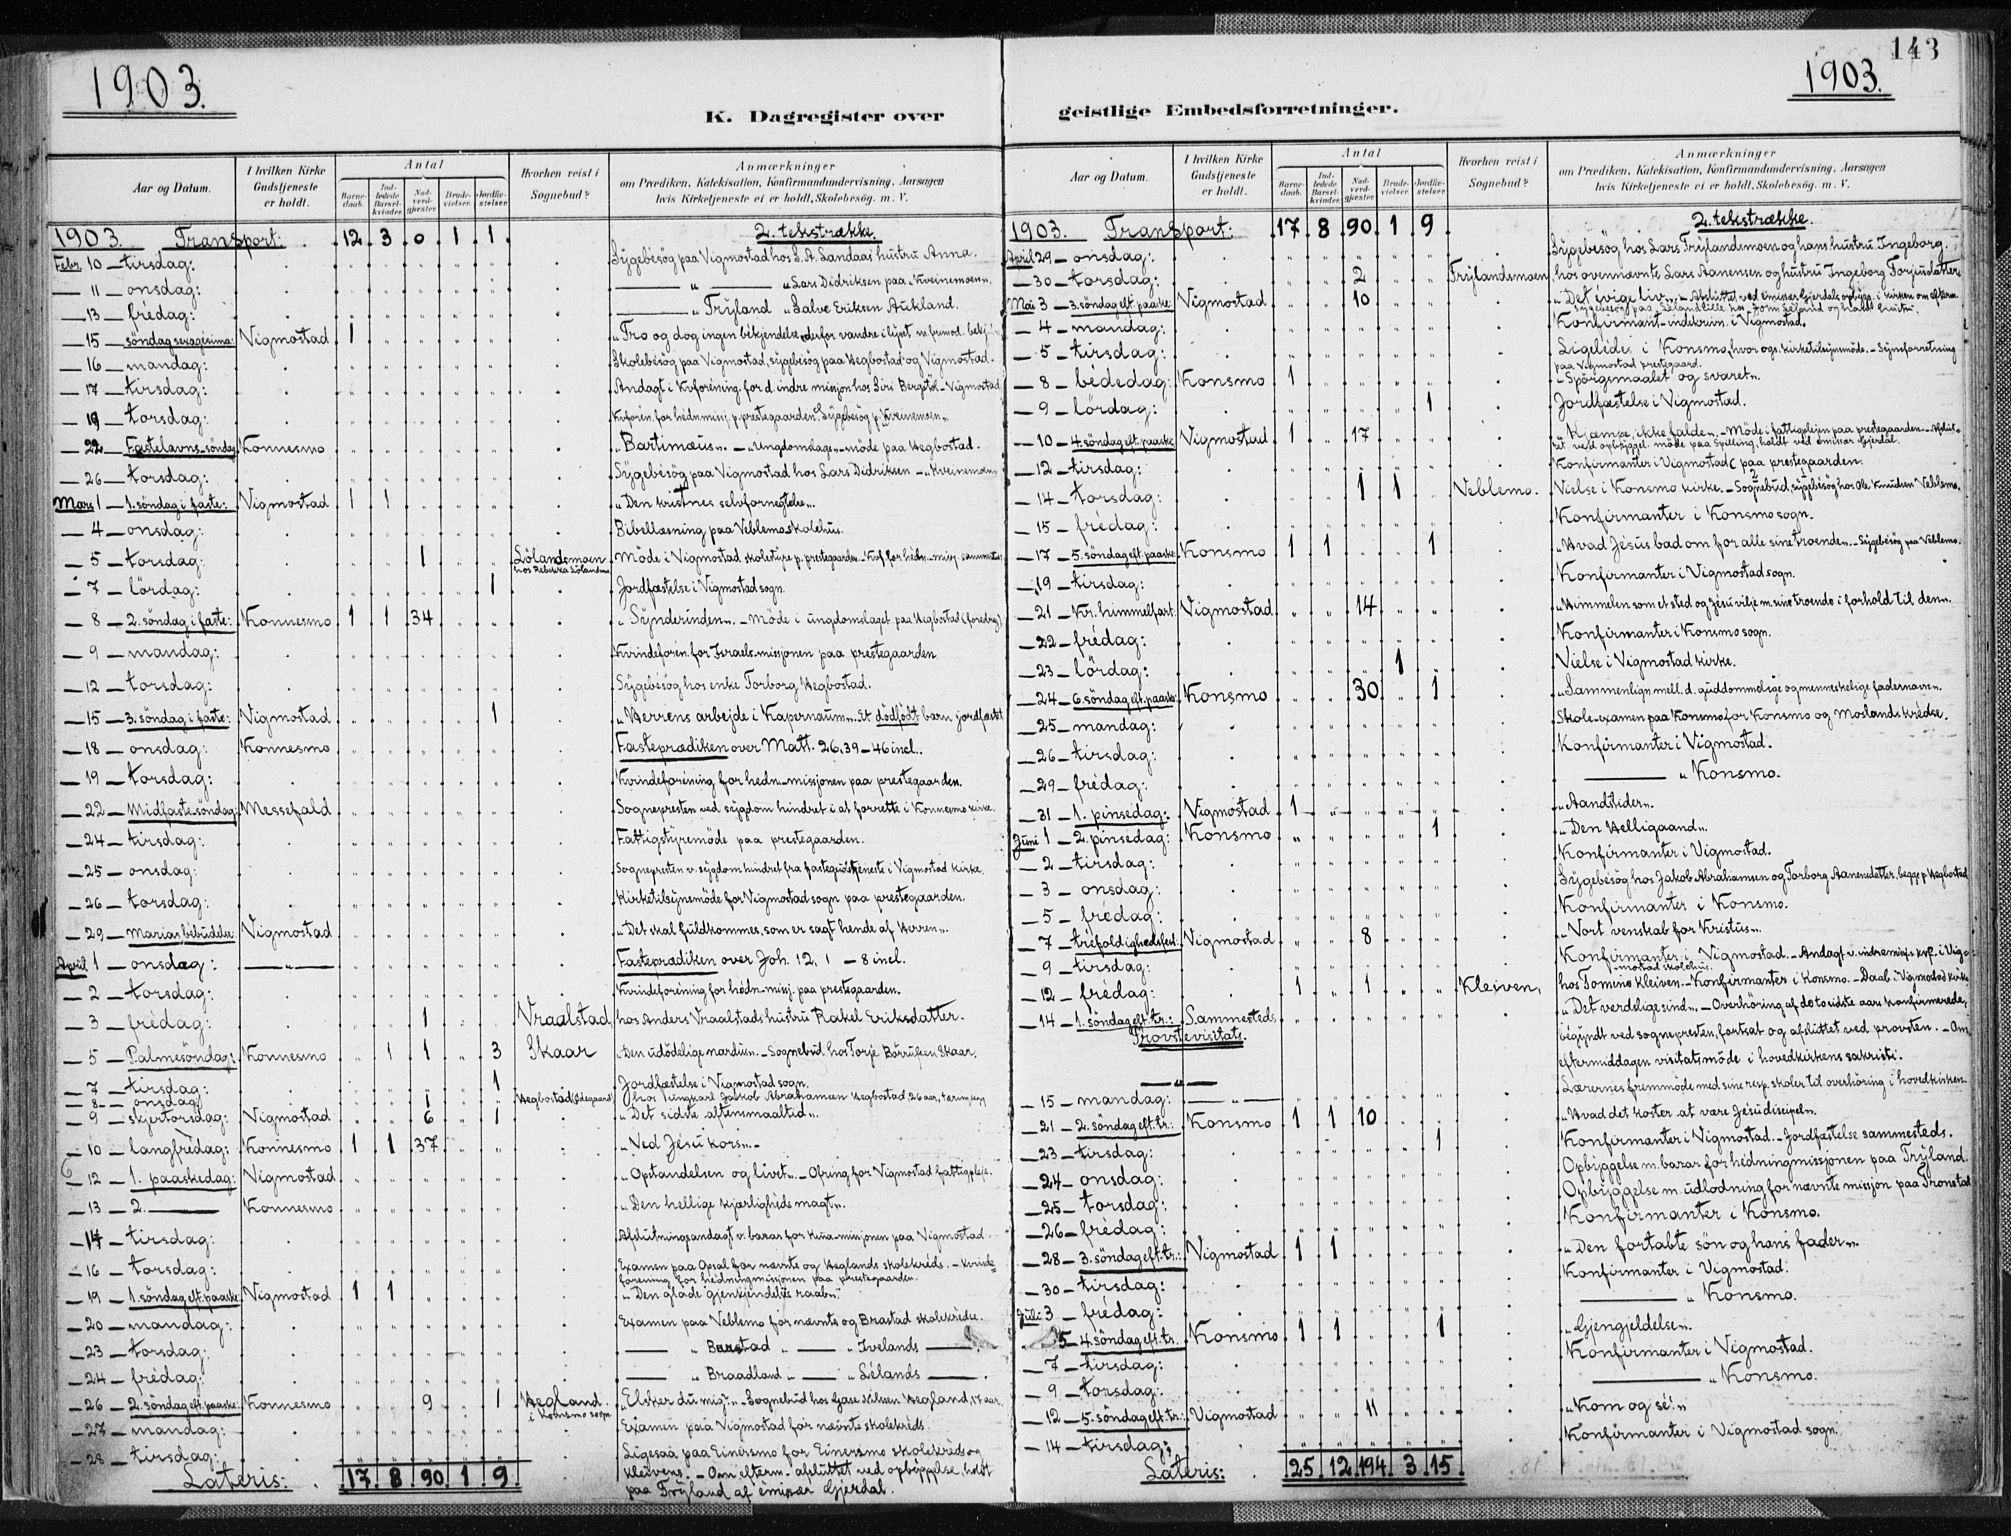 143
1903.
1903.
K. Dagregister over geistlige Embedsforretninger.
Aar og Datum. I hvilken Kirke Gudstjeneste er holdt. Antal Barne-daab. Ind-ledede Barsel-kvinder. Nad-verd-gjester. Brude-vielser. Jordfæ-stelser. Hvorhen reist i Sognebud? Anmærkninger om Prædiken, Katekisation, Konfirmandundervisning, Aarsagen hvis Kirketjeneste ei er holdt, Skolebesög. m. V.
1903. Transport: 12 3 0 1 1 2. tekstrække.
Febr. 10 – tirsdag: Sygebesög paa Vigmostad hos L. A. Sandaas hustru Anna.
— 11 – onsdag: — " — " Lars Didriksen paa "Kveinemoen".
— 13 – fredag: — " Tryland " Salve Eriksen Aukland.
— 15 – söndag sexagesima: Vigmostad 1 "Tro og dog ingen bekjendelse, derfor vandre i lyset m. frimod.
— 16 – mandag: Skolebesög paa Vigmostad, sygebesög paa Hegbostad og Vigmostad.
— 17 – tirsdag: Andagt i Kvforening for d. indre misjon hos Siri Bergstöl – Vigmostad
— 19 – torsdag: Kvforen. for hednmisj. p. prestegaarden. Sygebesög p. "Kveinemoen"
— 22 – Fastelavns-söndag: Konnesmo "Bartimæus". – "Ungdomslags"-möde paa Hegbostad.
— 26 – torsdag: Sygebesög paa Vigmostad hos Lars Didriksen – "Kveinemoen
Mars 1 – 1. söndag i faste: Vigmostad 1 1 "Den kristnes selvfornegtelse".
— 4 – onsdag: Bibellæsning paa Veblemo skolehus.
— 5 – torsdag: 1 Lölandsmoen hos Rebekka Lölandsm Möde i Vigmostad skolestyre p. prestegaarden. – Kvf. for hedn-misj. sammesteds
— 7 – lördag: 1 Jordfæstelse i Vigmostad sogn.
— 8 – 2. söndag i faste: Konnesmo 1 1 34 "Synderinden". – Möde i ungdomslaget paa Hegbostad (foredrag).
— 9 – mandag: Kvindeforen. for Israels-missjonen paa prestegaarden.
— 12 – torsdag: Sygebesög hos enke Torborg Hegbostad.
— 15 – 3. söndag i faste: Vigmostad 1 "Herrens arbejde i Kapernaum". Et dödfödt barn jordfæstet
— 18 – onsdag: Konnesmo Fasteprædiken over Matt. 26, 39 – 46 incl.
— 19 – torsdag: Kvindeforening for hedn-missjonen paa prestegaarden.
— 22 – Midfaste-söndag: Messefald Sognepresten ved sygdom hindret i at forrette i Konnesmo kirke.
— 24 – tirsdag: Fattigstyremöde paa prestegaarden.
— 25 – onsdag: Sognepresten v. sygdom hindret fra fastegudstjeneste i Vigmostad kirke.
— 26 – torsdag: Kirketilsynsmöde for Vigmostad sogn paa prestegaarden.
— 29 – Mariæ bibudelse: Vigmostad "Det skal fuldkommes, som er sagt hende af Herren".
April 1 – onsdag: — " — Fasteprædiken over Joh. 12, 1 – 8 incl.
— 2 – torsdag: Kvindeforening for hedn-missj. paa prestegaarden.
— 3 – fredag: 1 Vraalstad, hos Anders Vraalstads hustru Rakel Eriksdatter.
— 5 – Palmesöndag: Konnesmo 1 1 3 Skaar "Den udödelige nardus". – Sognebud hos Torje Börrufsen Skaar.
— 7 – tirsdag: 1 Jordfæstelse i Vigmostad sogn.
— 8 – onsdag: 1 Hegbostad (Ödegaard) hos ungkarl Jakob Abrahamsen Hegbostad, 26 aar, tæring syg
— 9 – skjertorsdag: Vigmostad 6 1 "Det sidste aftensmaaltid".
— 10 – langfredag: Konnesmo 1 1 37 "Ved Jesu kors".
— 12 – 1. paaskedag: Vigmostad "Opstandelsen og livet". – Ofring for Vigmostad fattigpleje.
— 13 – 2. — Konnesmo "Den hellige kjærligheds magt".
— 14 – tirsdag: Afslutningsandagt v. bazar for Kina-missjonen paa Vigmostad.
— 16 – torsdag: Examen paa Opsal for nævnte og Heglands skolekreds. – Kvinde-
forening for hedningmissjonen paa prestegaarden.
— 19 – 1. söndag eft. paaske: Vigmostad 1 1 "Den glade gjenkjendelses raab".
— 20 – mandag: Examen paa Veblemo for nævnte og Brastad skolekredse.
— 23 – torsdag: — " Buestad " — " Ivelands —
— 24 – fredag: — " Braadland " — " Lélands — .
— 26 – 2. söndag eft. paaske: Konnesmo 9 1 Hegland i Konsmo sogn "Elsker du mig?". – Sognebud hos Gjase Nilsen Hegland, 17 aar.
— 27 – mandag: Examen paa Vigmostad for nævnte skolekreds.
— 28 – tirsdag: Ligesaa paa Einersmo for Einersmo skolekreds og
Kleivens. – Om efterm. afsluttet ved opbyggelse, holdt
paa Tryland af emissær Gjerdal.
Lateris: 17 8 90 1 9
Aar og Datum. I hvilken Kirke Gudstjeneste er holdt. Antal Barne-daab. Ind-ledede Barsel-kvinder. Nad-verd-gjester. Brude-vielser. Jordfæ-stelser. Hvorhen reist i Sognebud? Anmærkninger om Prædiken, Katekisation, Konfirmandundervisning, Aarsagen hvis Kirketjeneste ei er holdt, Skolebesög. m. V.
1903. Transport: 17 8 90 1 9 2. tekstrække.
April 29 – onsdag: Sygebesög hos Lars Trylandsmoen og hans hustru Ingeborg.
— 30 – torsdag: 2 Trylandsmoen, hos ovennævnte Lars Aanensen og hustru Ingeborg Torjusdatter
Mai 3 – 3. söndag eft. paaske: Vigmostad 10 "Det evige liv". – Afsluttet ved emissær Gjerdals opbygg. i kirken om efterm.
Sygebesög paa Lélandslille hos
— 4 – mandag: Konfirmant-indskrivn. i Vigmostad.
— 5 – tirsdag: Ligeledes i Konsmo, hvor ogs. kirketilsynsmöde. – Synsforretning
paa Vigmostad prestegaard.
— 8 – bededag: Konsmo 1 "Spörgsmaalet og svaret".
— 9 – lördag: 1 Jordfæstelse i Vigmostad.
— 10 – 4. söndag eft. paaske: Vigmostad 1 17 "Kjæmpe, ikke falde". – Möde i fattigplejen paa prestegaarden. – Afslut-
tet ved opbyggel. möde paa Spilling, holdt ved emissær Gjerdal.
— 12 – tirsdag: Konfirmanter i Vigmostad paa prestegaarden.
— 14 – torsdag: 1 1 Veblemo. Vielse i Konsmo kirke. – Sognebud, sygebesög hos Ole Knudsen Veblemo.
— 15 – fredag: Konfirmanter i Konsmo sogn.
— 17 – 5. söndag eft. paaske: Konsmo 1 1 1 "Hvad Jesus bad om for alle sine troende". – Sygebesög paa Veblemo.
— 19 – tirsdag: Konfirmanter i Vigmostad sogn.
— 21 – Kr. himmelfart: Vigmostad 14 "Himmelen som et sted og Jesu vilje m. sine troende i forhold til den".
— 22 – fredag: Konfirmanter i Konsmo sogn.
— 23 – lördag: 1 Vielse i Vigmostad kirke.
— 24 – 6. söndag eft. paaske: Konsmo 30 1 "Sammenlign. mell. d. guddommelige og menneskelige fadernavn".
— 25 – mandag: Skole-examen paa Konsmo for Konsmo og Moslands kredse.
— 26 – tirsdag: Konfirmanter i Vigmostad.
— 29 – fredag: — " Konsmo.
— 31 – 1. pinsedag: Vigmostad 1 "Aandstider".
Juni 1 – 2. pinsedag: Konsmo 1 "Den Helligaand".
— 2 – tirsdag: Konfirmanter i Vigmostad.
— 3 – onsdag: Sygebesög hos Jakob Abrahamsen og Torborg Aanensdatter, begge p. Hegbostad
— 5 – fredag: Konfirmanter i Konsmo.
— 7 – trefoldighedsfest: Vigmostad 8 "Vort venskab for Kristus".
— 9 – tirsdag: Konfirmanter i Vigmostad. – Andagt v. indremisj. i Vig-
mostad skolehus.
— 12 – fredag: 1 1 Kleiven, hos Tomine Kleiven. – Konfirmanter i Konsmo. – Daab i Vigmostad kirke
— 14 – 1. söndag eft. tr.: Sammesteds "Det verdslige sind". – Overhöring af de to sidste aars konfirmerede,
Provstevisitats. begyndt ved sognepresten, fortsat og afsluttet ved provsten. – Om
eftermiddagen visitatsmöde i hovedkirkens sakristi.
— 15 – mandag: — " — Lærernes fremmöde med sine resp. skoler til overhöring i hovedkirken.
— 21 – 2. söndag eft. tr.: Konsmo 1 1 10 "Hvad det koster at være Jesu discipel".
— 23 – tirsdag: 1 Konfirmanter i Vigmostad. – Jordfæstelse sammesteds.
— 24 – onsdag: Opbyggelse m. bazar for hedningmissjonen paa Tryland.
— 25 – torsdag: Opbyggelse m. udlodning for nævnte missjon paa Tronstad
— 26 – fredag: Konfirmanter i Konsmo.
— 28 – 3. söndag eft. tr.: Vigmostad 1 1 "Den fortabte sön og hans fader".
— 30 – tirsdag: Konfirmanter i Vigmostad.
Juli 3 – fredag: — " Konsmo.
5 – 4. söndag eft. tr. Konsmo 1 1 1 "Gjengjeldelse".
— 7 – tirsdag: Konfirmanter i Vigmostad.
— 9 – torsdag: — " Konsmo.
— 12 – 5. söndag eft. tr.: Vigmostad 11 "Kom og sé!"
— 14 – tirsdag: Konfirmanter i Vigmostad sogn.
Lateris: 25 12 194 3 15